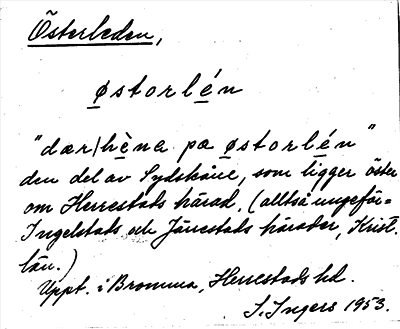 Österleden,
østorlén
"dær|hèna pa østorlén"
den del av Sydskåne, som ligger öster
om Herrestads härad. (alltså ungefär=
Ingelstads och Järrestads härader, Krist.
län.)
Uppt. i Bromma, Herrestads hd.
S. Ingers 1953.